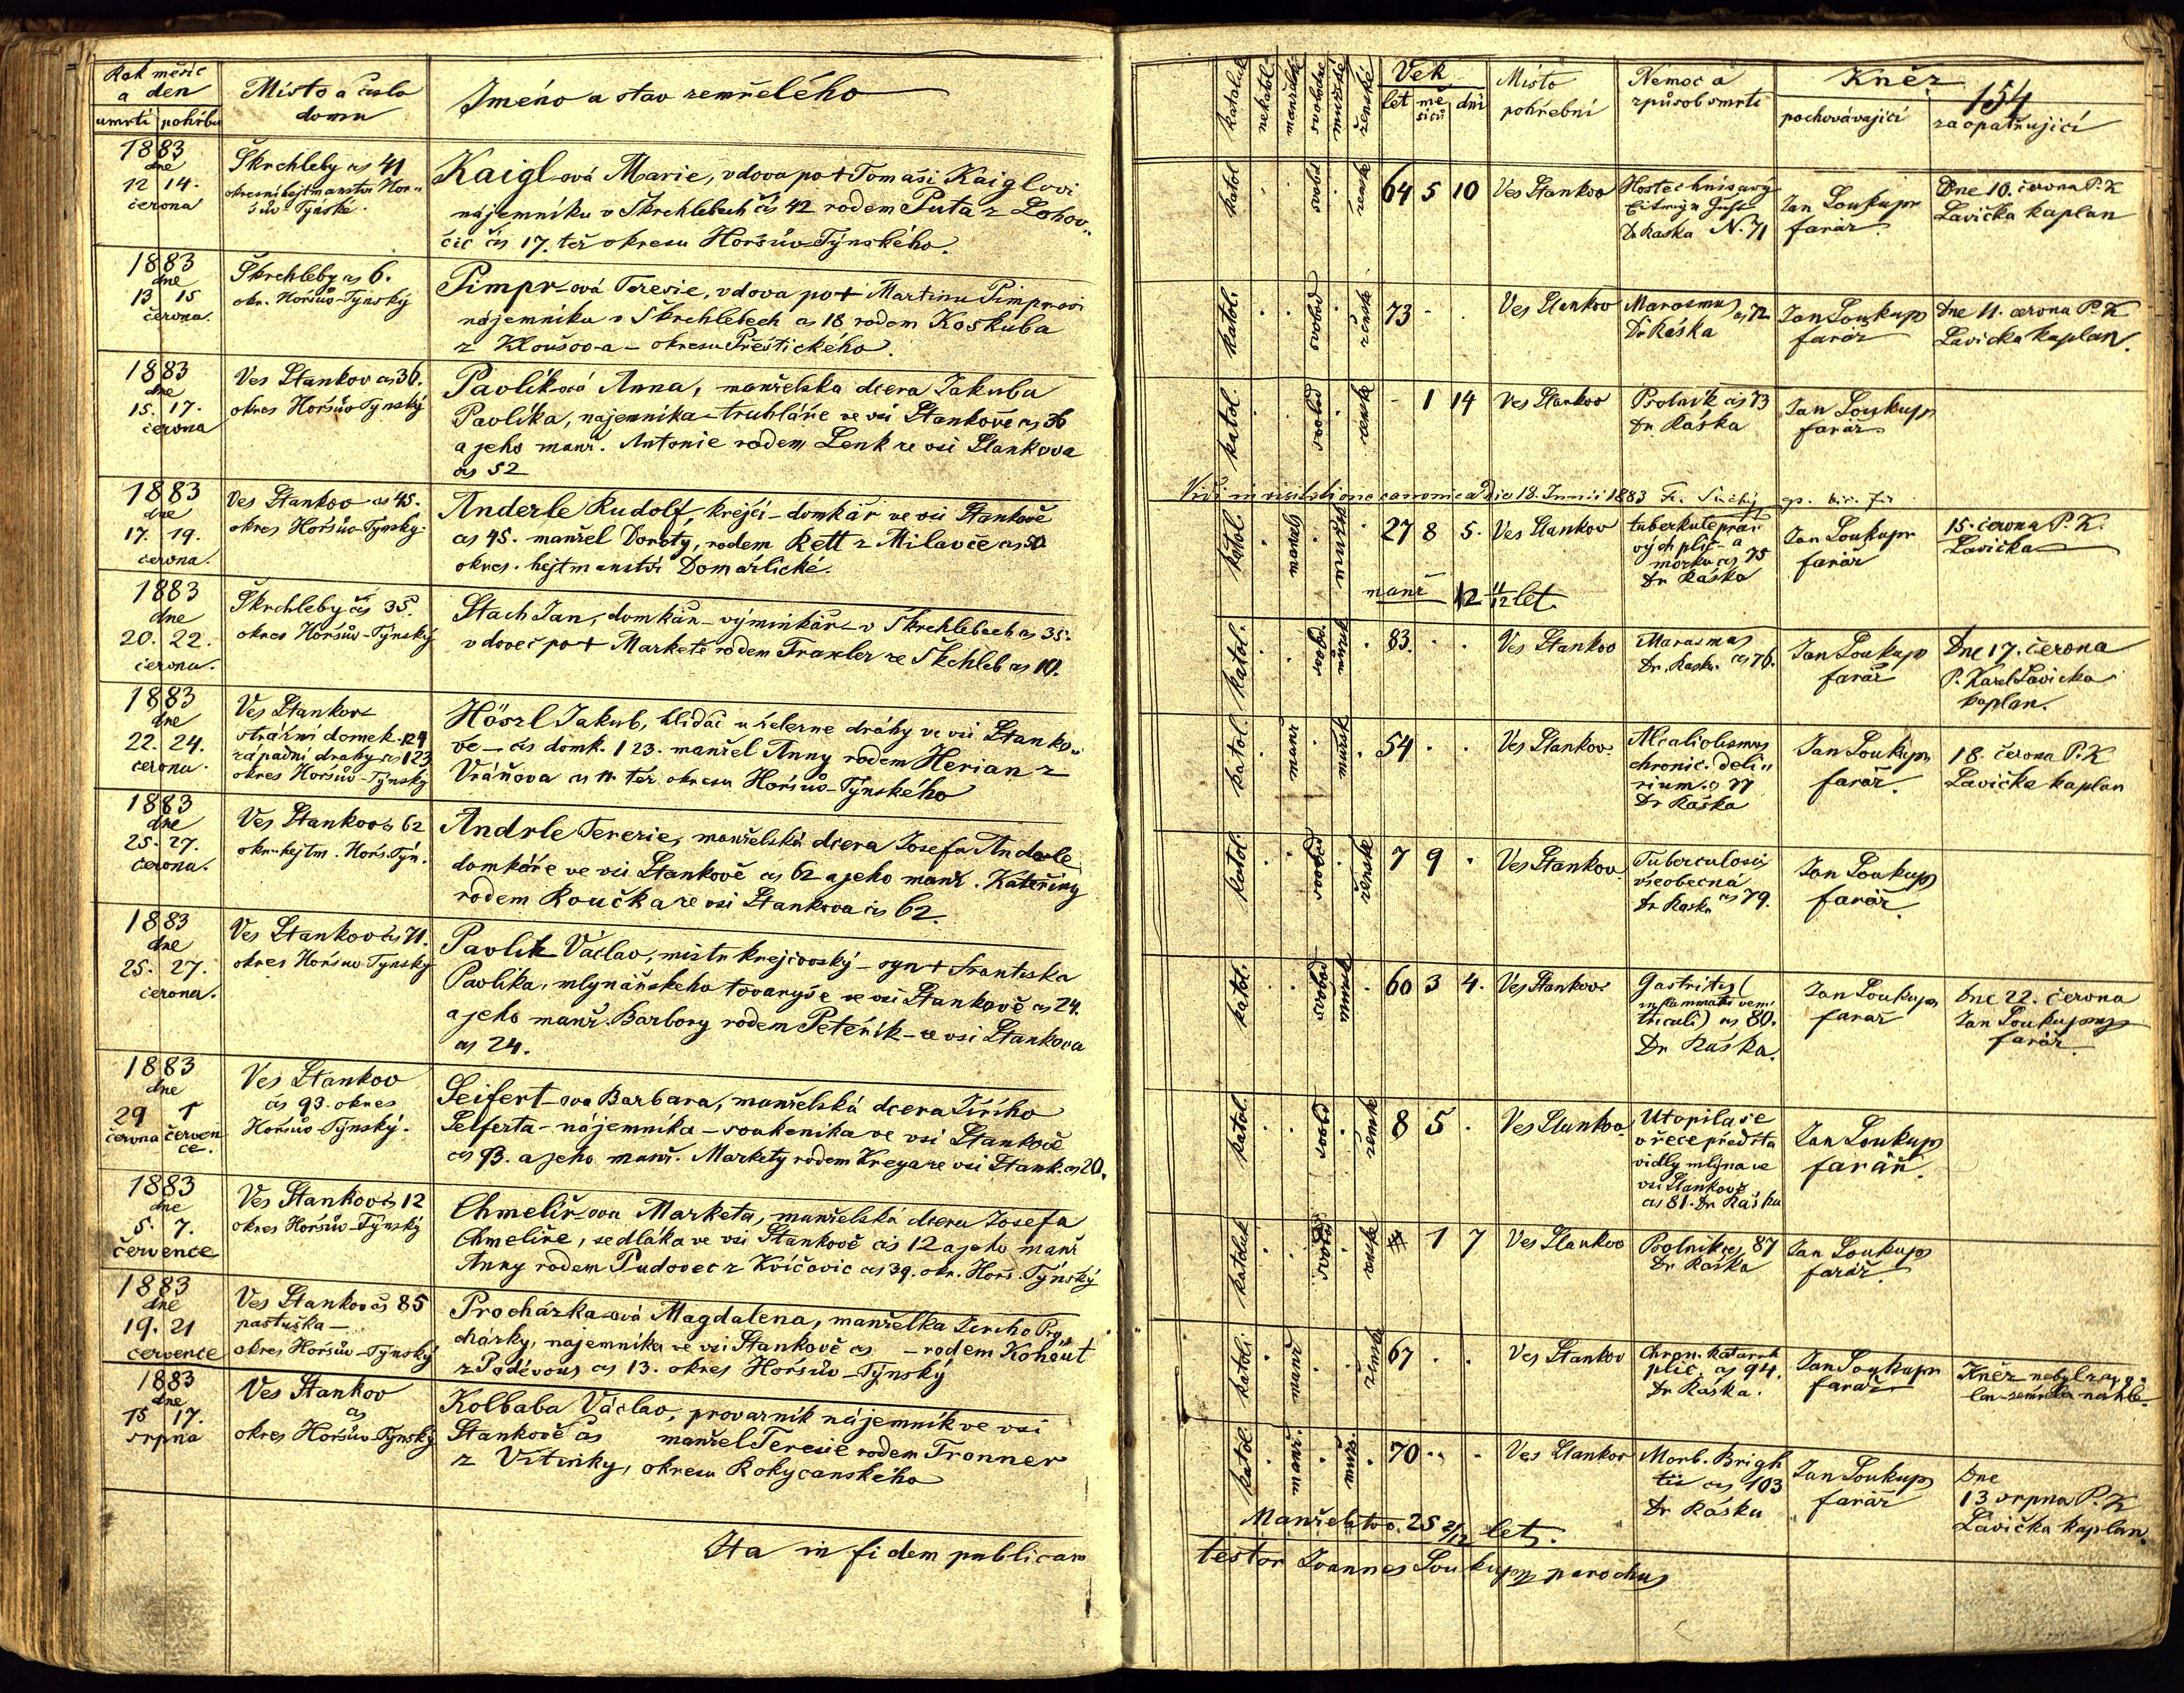 Rok měsíc
a den
umrtí pohřbu
Místo a číslo
domu
Jméno a stav zemřelého
1883
dne
12 14.
června
Škrchleby čs 41
okresní hejtmanstvo Hor„
šův-Týnské.
Kaigl-ová Marie, vdova po + Tomáši Kaiglovi
nájemníku v Škrchlebech čs 42 rodem Puta z Lohov„
čic čs 17. též okresu Horšův-Týnského.
1883
dne
13 15
června.
Škrchleby čs 6.
okr. Horšův-Týnský
Pimpr-ová Teresie, vdova po + Martinu Pimprovi
nájemníku v Škrchlebech čs 18 rodem Koškuba
z Kloušova - okresu Přeštického.
1883
dne
15. 17.
června
Ves Stankov čs 36.
okres Horšův-Týnský
Pavlíková Anna, manželska dcera Jakuba
Pavlíka, najemníka - truhláře ve vsi Stankově čs 36
a jeho manž. Antonie rodem Lenk ze vsi Stankova
čs 52
1883
dne
17. 19.
června.
Ves Stankov čs 45.
okres Horšův-Týnský.
Anderle Rudolf, krejčí - domkář ve vsi Stankově
čs 45. manžel Doroty, rodem Rett z Milavče čs 50
okres. hejtmanství Domažlické.
1883
dne
20. 22.
června.
Škrchleby čs 35.
okres Horšův-Týnský
Stach Jan, domkář - výminkář - v Škrchlebech čs 35.
vdovec po + Marketě rodem Traxler ze Škchleb čs 10.
1883
dne
22. 24.
června.
Ves Stankov
strážní domek 124
západní drahy čs 123
okres Horšův-Týnský
Hösrl Jakub, hlídač u železne dráhy ve vsi Stanko„
vě - čs domk. 123. manžel Anny rodem Herian z
Vráňova čs 11. téz. okresu Horšův-Týnského
1883
dne
25. 27.
června.
Ves Stankov čs 62
okr. hejtm. Horš. Týn.
Andrle Terezie, manželská dcera Josefa Anderle
domkáře ve vsi Stankově čs 62 a jeho manž. Kateřiny
rodem Roučka ze vsi Stankova čs 62.
1883
dne
25. 27.
června.
Ves Stankov čs 71.
okres Horšuv Tynský
Pavlík Václav, mistr krejčovský - syn + Frantiska
Pavlíka, mlynářskeho tovaryše ve vsi Stankově čs 24.
a jeho manž. Barbory rodem Peteřík - ze vsi Stankova
čs 24.
1883
dne
29 1
června červen
ce.
Ves Stankov
čs 93. okres
Horšův-Týnský.
Seifert-ova Barbara, manželská dcera Jiřího
Seiferta - nájemníka - soukeníka ve vsi Stankově
čs 93. a jeho manž. Markety rodem Krega ze vsi Stank. čs 20.
1883
dne
5. 7.
července
Ves Stankov čs 12
okres Horšův-Týnský
Chmelíř-ova Marketa, manželská dcera Josefa
Chmelíře, sedláka ve vsi Stankově čs 12 a jeho manž
Anny rodem Pudovec z Kvíčovic čs 39. okr. Horš. Týnský
1883
dne
19. 21
července
Ves Stankov čs 85
pastuška -
okres Horšův-Týnský
Procházka-ová Magdalena, manželka Jiřího Pro„
cházky, najemníka ve vsi Stankově čs - rodem Kohout
z Poděvous čs 13. okres Horšův-Týnský
1883
dne
15 17.
srpna
Ves Stankov
čs
okres Horšův-Týnský
Kolbaba Václav, provazník nájemník ve vsi
Stankově čs manžel Teresie rodem Tronner
z Vitinky, okresu Rokycanského
Ita in fidem publicam
katolické
nekatol.
manželské
svobodné
mužské
ženské
Vek
let mě
síců dní
Místo
pohřební
Nemoc a
způsob smrti
Kněz
154
pochovávající
zaopatřující
katol svobd ženské 64 5 10 Ves Stankov
Dr Raska N. 71
Jan Soukup
farář.
Dne 10. června P. K
Lavička kaplan
katol. svobod ženské 73 - . Ves Stankov
Marasmus čs 72
Dr Ráska
Jan Soukup
farář
Dne 11. června P. K
Lavička kaplan.
katol. svobod ženské - 1 14 Ves Stankov
Psotník čs 73
Dr. Ráska
Jan Soukup
farář
Vidi in visitatione canonica die 18. Junii 1883
katol. manžel mužské 27 8 5. Ves Stankov
tuberkule
vých plic a
čs 75
Dr Ráska
Jan Soukup
farář
15. června P. K.
Lavička
manž 12 11/12 let
katol. svobd. mužsk 83. . . Ves Stankov
Marasmus
Dr. Raska. čs 76.
Jan Soukup
farář
Dne 17. června
P. Karel Lavicka
kaplan.
katol. manž mužsk 54 . . Ves Stankov
Alcoliolismus
chronic. deli„
rium. čs 77
Dr Ráska
Jan Soukup
farář.
18. června P. K
Lavička kaplan
katol. svobod ženské 7 9 . Ves Stankov
Tuberculosis
všeobecná
Dr Raska čs 79.
Jan Soukup
farář.
katol. svobod mužsk 60 3 4. Ves Stankov
Gastritis (
inflammatio ven„
triculi) čs 80.
Dr Ráska.
Jan Soukup
farář
Dne 22. června
Jan Soukup
farář.
katol. svobd ženské 8 5 . Ves Stankov
Utopila se
v řece předsta
vidly mlýna ve
vsi Stankově
čs 81. Dr Raska
Jan Soukup
farář.
katolick svobod ženské 1 7 Ves Stankov
Psotník čs 87
Dr Ráska
Jan Soukup
farář.
katoli. manž ženské 67 . . Ves Stankov
Chron. katarrh
plic. čs 94.
Dr Ráska.
Jan Soukup
farář
Kněz nebyl zavo„
lan - zemřela náhle.
katol. manž. mužs. 70 . . Ves Stankov
Morb. Brigh
tii čs 103
Dr Ráska
Jan Soukup
farář
Dne
13 srpna P. K
Lavička kaplan.
Manželstvo. 25 2/12 let.
testor Joannes Soukup parochus